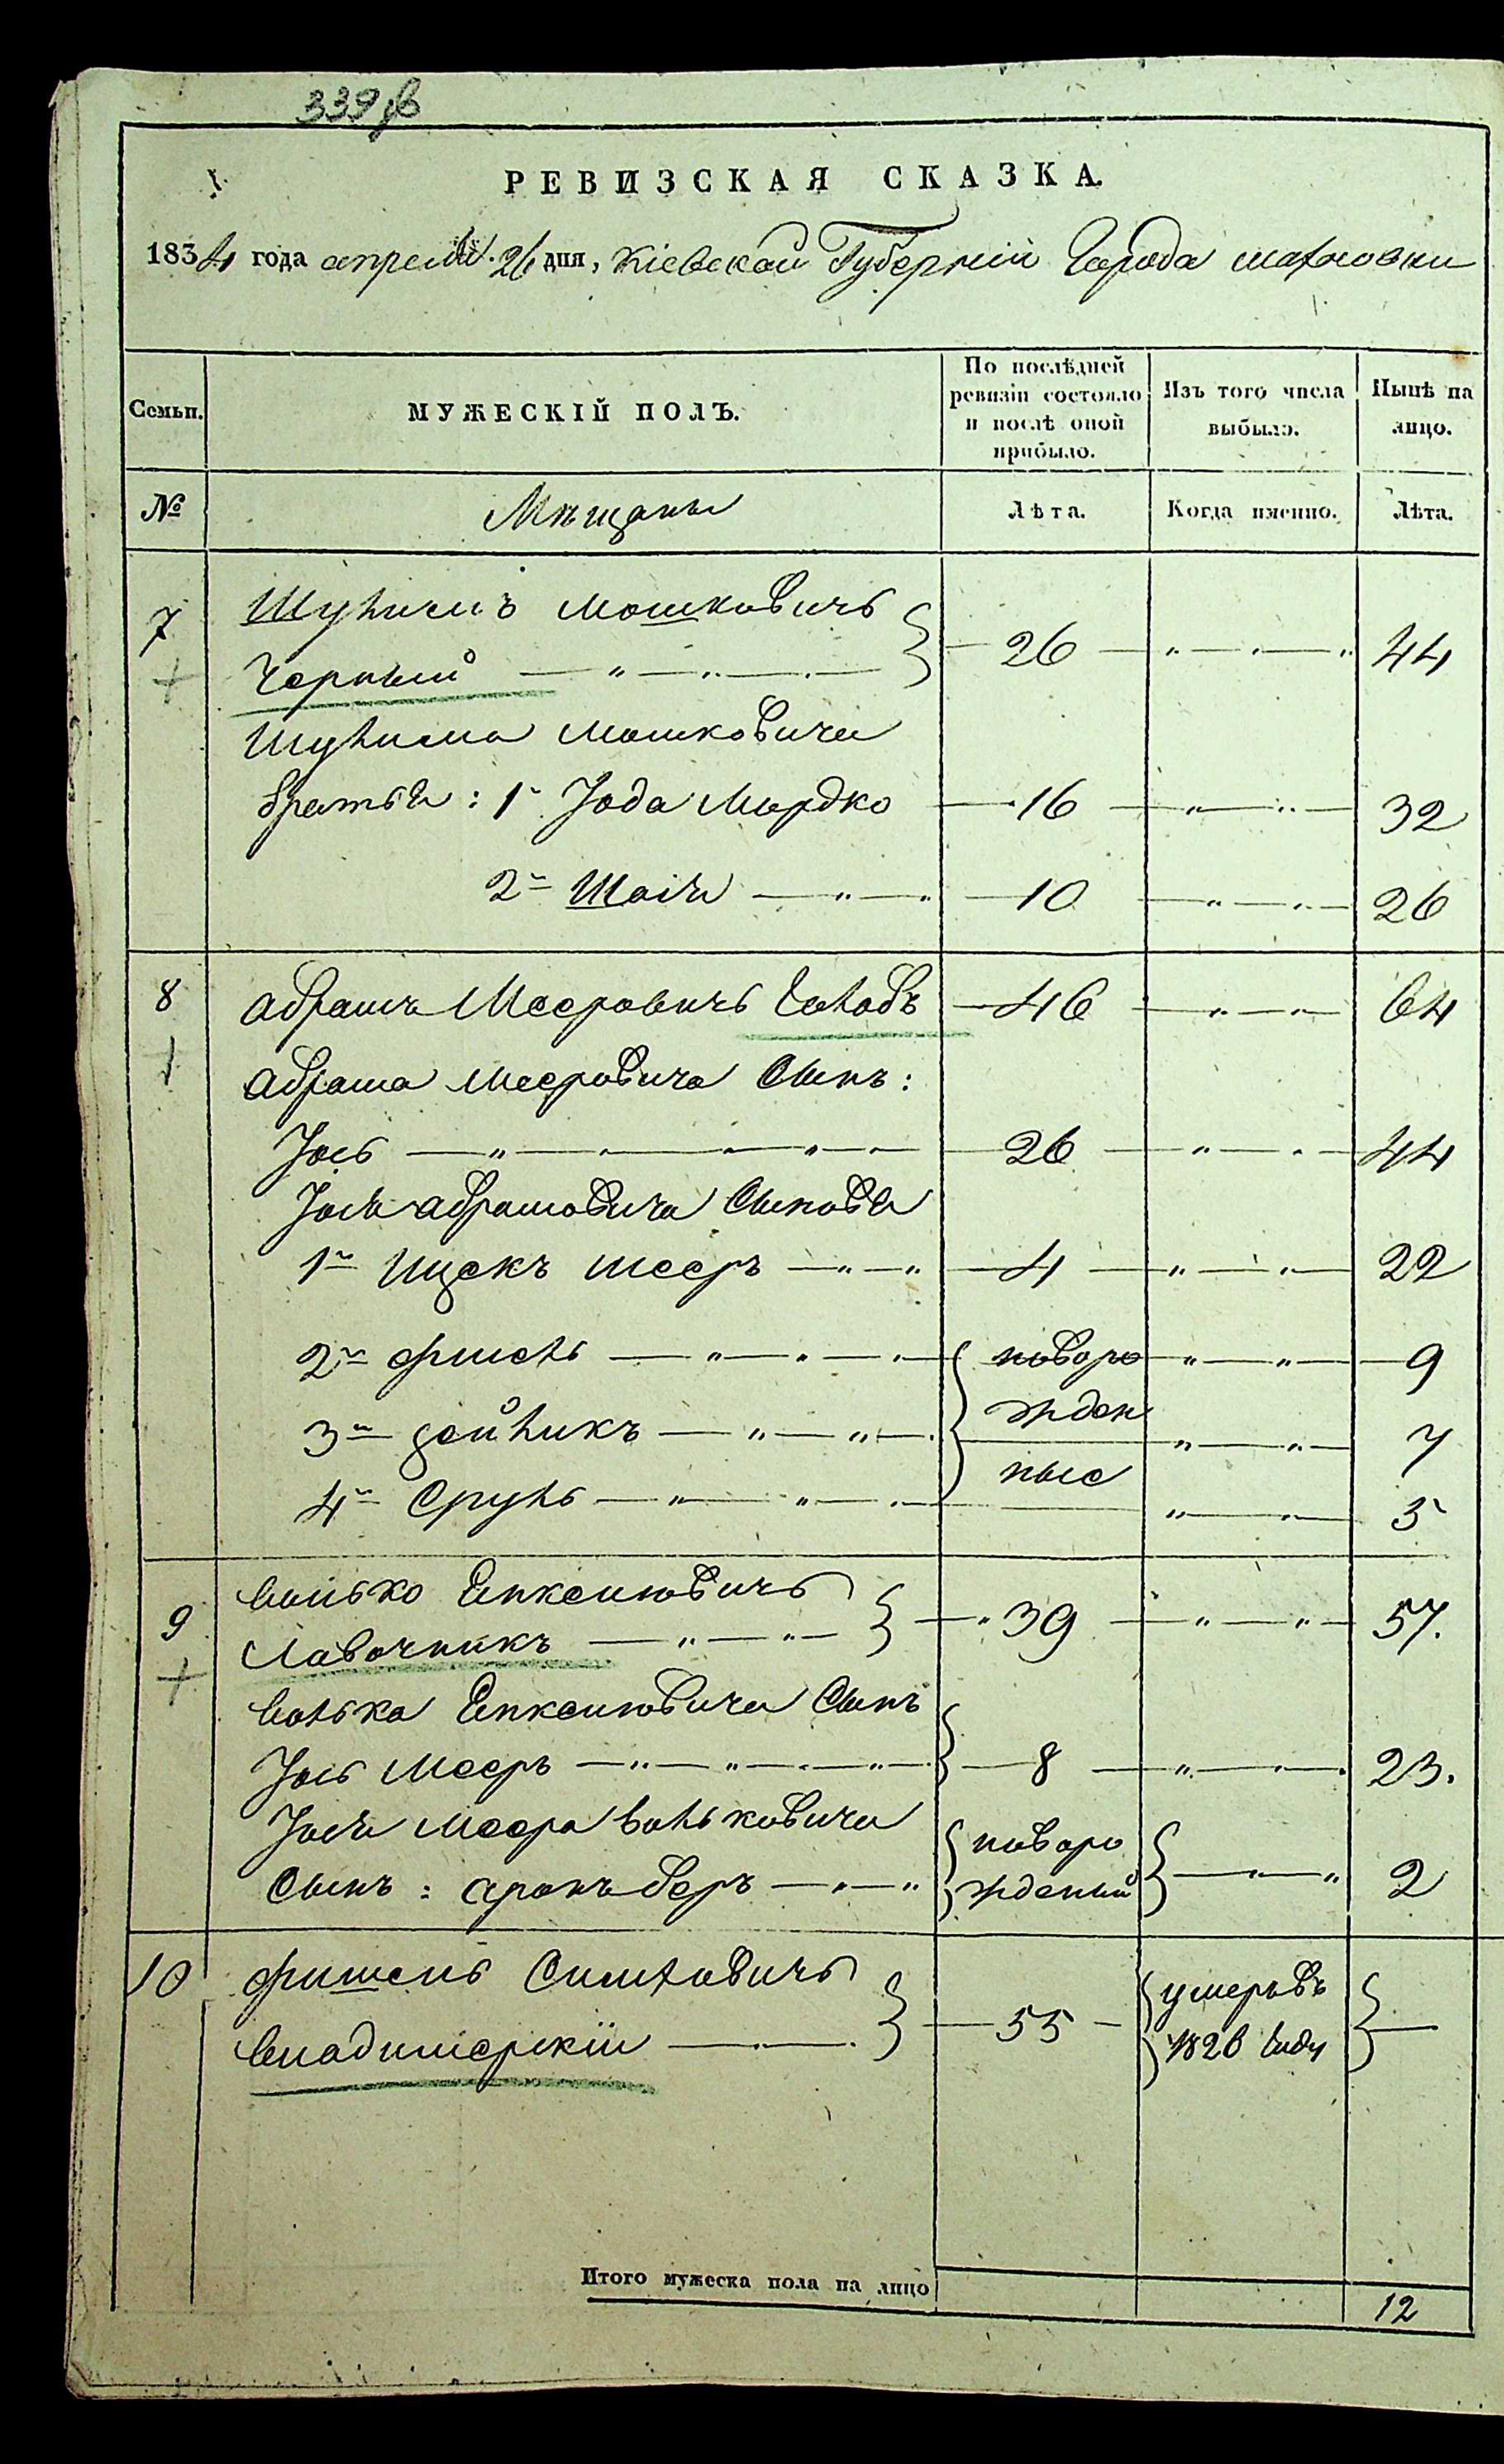 339 об
РЕВИЗСКАЯ СКАЗКА.
1834 года апреля 26 дня, Кіевской Губерніи Города Махновки
Семьи. МУЖЕСКІЙ ПОЛЪ. По послѣдней ревизіи состояло и послѣ оной прибыло. Изъ того числа выбыло. Нынѣ на лицо.
№ Мѣщаны Лѣта. Когда именно. Лѣта.
7 Шулимъ Мошковичь
Черный 26 44
Шулима Мошковича
братья: 1й Іода Мордко 16 32
2й Шаія 10 26
8 Абрамъ Мееровичь Голобъ 46 64
Абрама Мееровича Сынъ:
Іось 26 44
Іося Абрамовича Сыновья
1й Ицекъ Мееръ 4 22
2й Фишель новоро 9
3й Зейликъ жден 7
4й Сруль ные 5
9 Волько Янкелиовичь
Лавочникъ 39 57.
Волька Янкелиовича Сынъ
Іось Мееръ 8 23.
Іося Меера Вольковича новоро
Сынъ: Аронъ Беръ жденый 2
10 Фишель Симховичь умеръ въ
Владимерскій 55 1826 Году
Итого мужеска пола на лицо 12